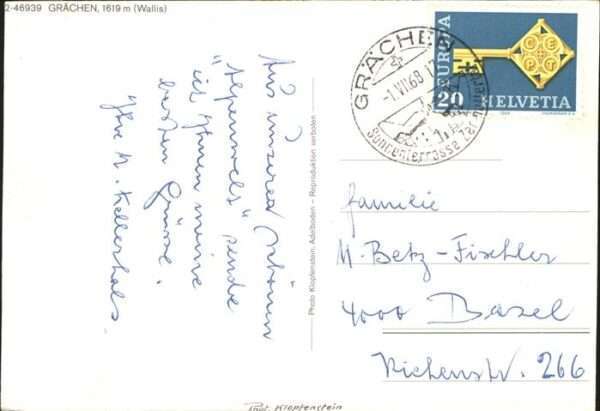 2-46939 GRÄCHEN, 1619 m (Wallis)
Aus unserer schönen
"Alpenwelt" sende
ich Ihnen meine
besten Grüsse.
Ihre M. Kellerhals.
Photo Klopfenstein, Adelboden – Reproduktion verboten
GRÄCHEN
-1.VII.68
Sonnenterrasse
EUROPA
CEPT
20 HELVETIA
Familie
M. Betz-Fischler
4000 Basel
Riehenstr. 266
Phot. Klopfenstein